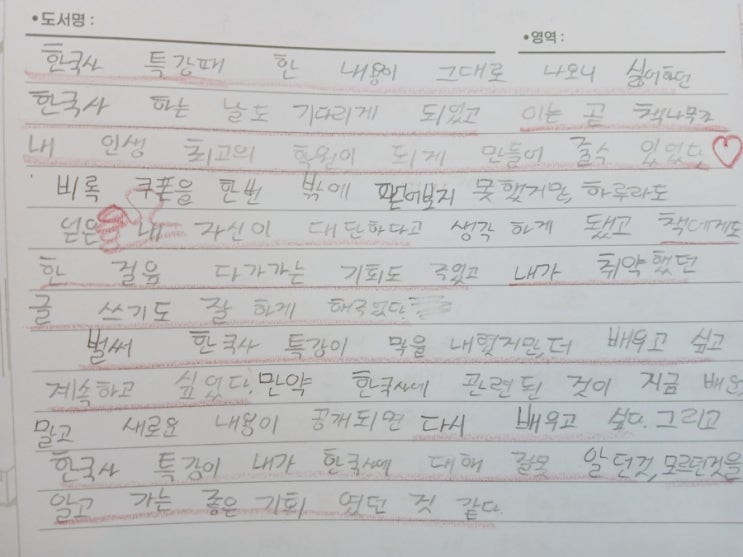 •도서명 : •영역 :
한국사 특강때 한 내용이 그대로 나오니 싫어하던
한국사 하는 날도 기다리게 되었고 이는 곧 책나무가
내 인생 최고의 학원이 되게 만들어 줄수 있었다♡
비록 쿠폰을 한번 밖에 못했지만, 하루라도
얻은 내 자신이 대단하다고 생각 하게 됐고 책에게도
한 걸음 다가가는 기회도 주었고 내가 취약했던
글 쓰기도 잘 하게 해주었다.
벌써 한국사 특강이 막을 내렸지만, 더 배우고 싶고
계속하고 싶었다. 만약 한국사에 관련된 것이 지금 배운
말고 새로운 내용이 공개되면 다시 배우고 싶다. 그리고
한국사 특강이 내가 한국사에 대해 잘못 알던것, 모르던것을
알고 가는 좋은 기회 였던 것 같다